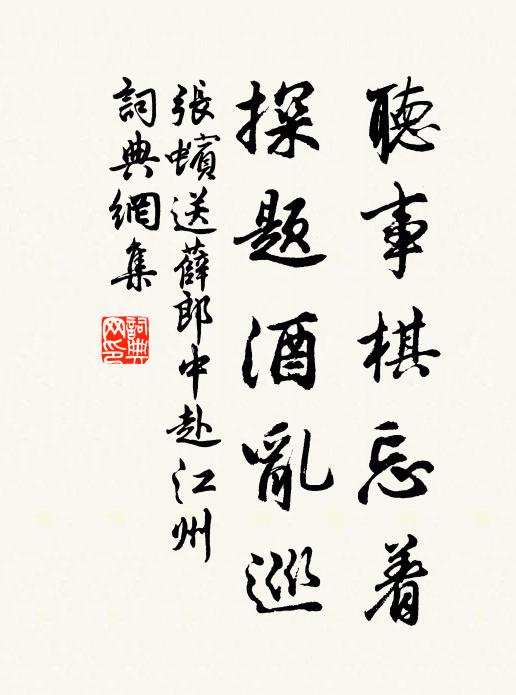 聽事棋忘着
探題酒亂巡
張蠙送薛郎中赴江州
詞典網集
詞典网印